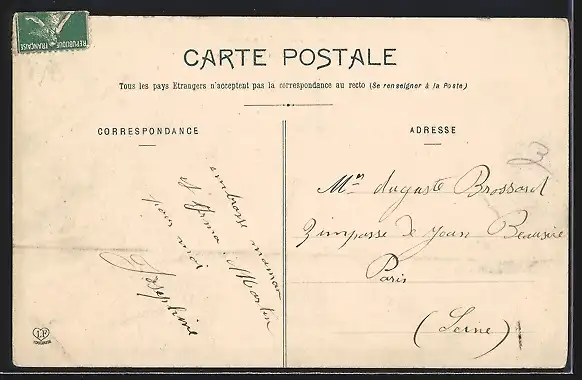 REPUBLIQUE FRANÇAISE
CARTE POSTALE
Tous les pays Etrangers n'acceptent pas la correspondance au recto (Se renseigner à la Poste)
CORRESPONDANCE
embrasse maman
et Irma Martin
pour moi
Joséphine
ADRESSE
Mr Auguste Brossard
3 impasse de Jean Beausire
Paris
(Seine)